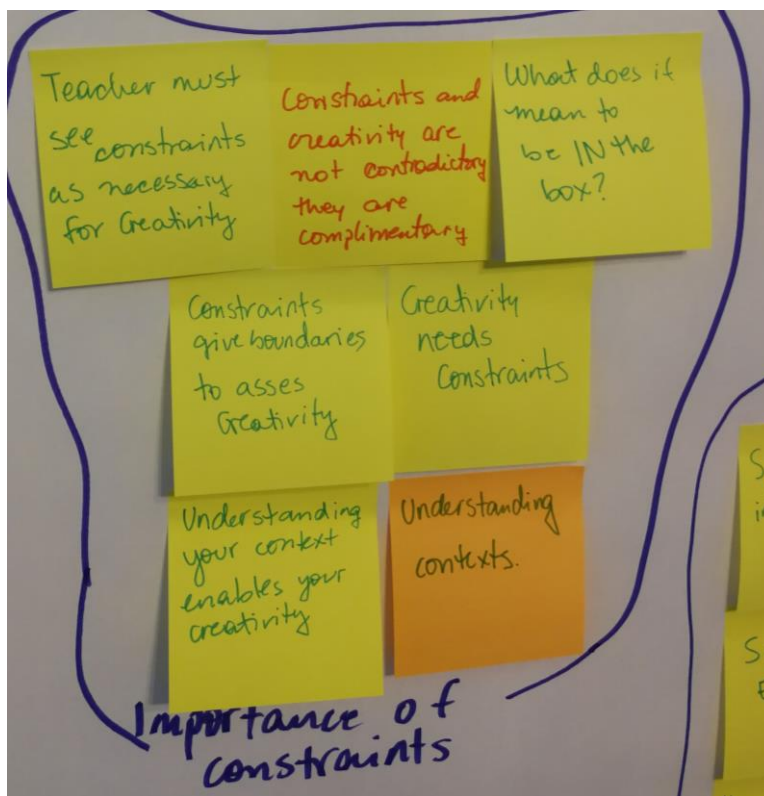 Teacher must
see constraints
as necessary
for Creativity
Constraints and
creativity are
not contradictory
they are
complimentary
What does it
mean to
be IN the
box?
Constraints
give boundaries
to asses
Creativity
Creativity
needs
Constraints
Understanding
your context
enables your
creativity
Understanding
contexts.
Importance of
constraints